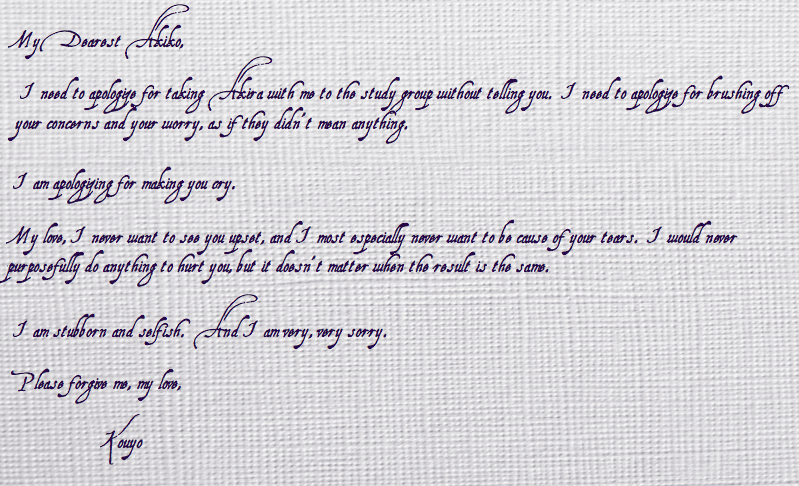 My Dearest Akiko,
I need to apologize for taking Akira with me to the study group without telling you. I need to apologize for brushing off
your concerns and your worry, as if they didn't mean anything.
I am apologizing for making you cry.
My love, I never want to see you upset, and I most especially never want to be cause of your tears. I would never
purposefully do anything to hurt you, but it doesn't matter when the result is the same.
I am stubborn and selfish. And I am very, very sorry.
Please forgive me, my love,
Kouyo